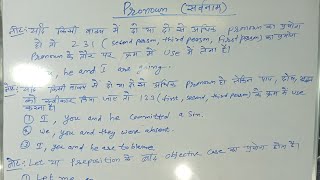 Pronoun (सर्वनाम)
नोट:- यदि किसी वाक्य में दो या दो से अधिक pronoun का प्रयोग
हो में 2 3 1 (second person, third person, first person) का प्रयोग
Pronoun के तौर पर क्रम में use में होता है।
he and I are going
नोट:- यदि किसी वाक्य में दो या दो से अधिक Pronoun हो लेकिन
किया जाये तो 123 (first, second, third person) के क्रम में use
करना है।
① I, you and he committed a Sin.
② We, you and they were absent.
③ I, you and he are to blame.
नोट:- Let या Preposition के बाद objective case का प्रयोग होता है।
① Let me